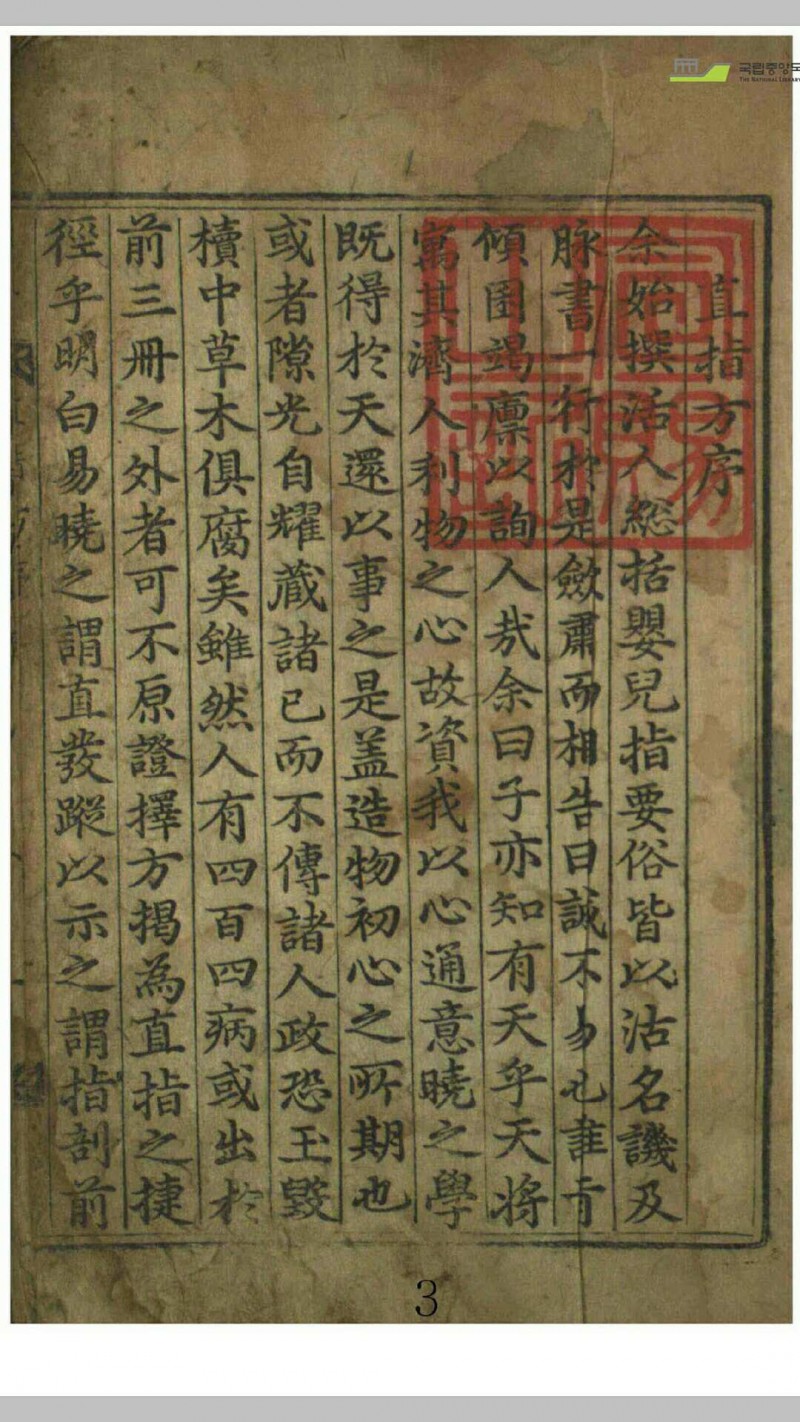 直指方序
余始撰活人総括嬰兒指要俗皆以沽名譏及
脉書一行於是歛肅而相告曰誠不易也誰肯
傾囷竭廪以詢人㢤余曰子亦知有天乎天將
寓其濟人利物之心故資我以心通意曉之學
既得於天還以事之是盖造物初心之所期也
或者隙光自耀蔵諸已而不傳諸人政恐玉毀
櫝中草木俱腐矣雖然人有四百四病或出於
前三冊之外者可不原證擇方揭為直指之捷
徑乎明白易曉之謂直發蹤以示之謂指剖前
국립중앙도
THE NATIONAL LIBRARY
3